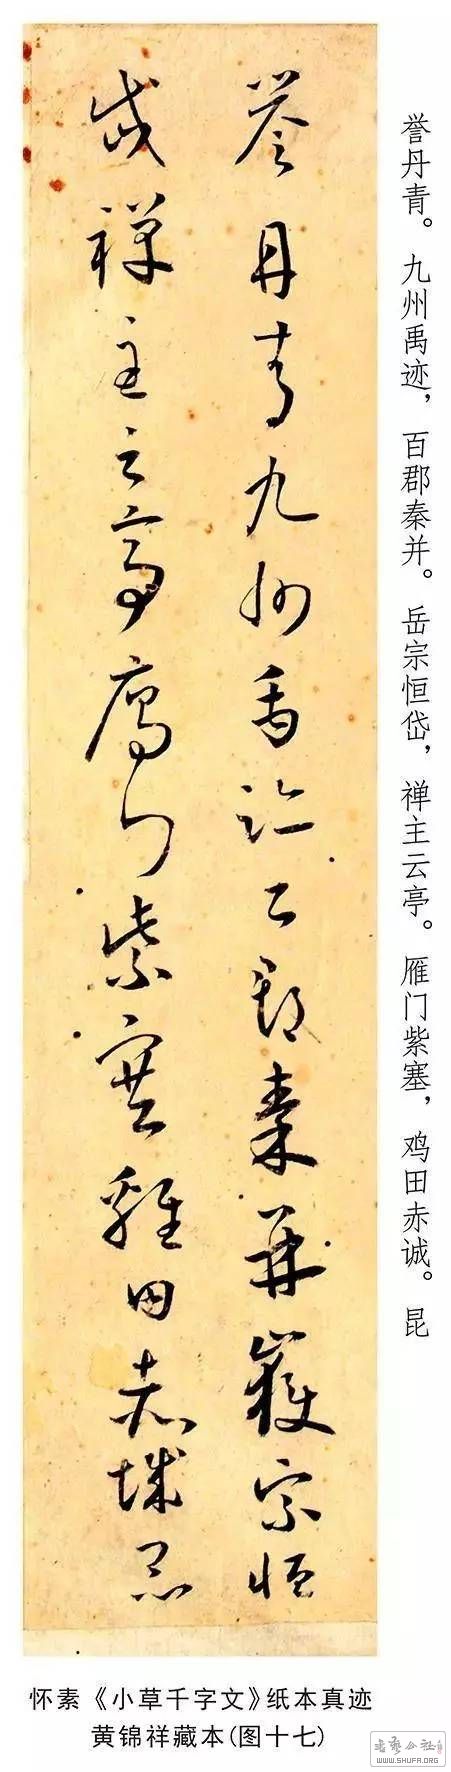 誉丹青。九州禹迹，百郡秦并。岳宗恒岱，禅主云亭。雁门紫塞，鸡田赤诚。昆
譽丹青九州禹跡百郡秦并嶽宗恒
岱禪主云亭鴈門紫塞雞田赤城昆
怀素《小草千字文》纸本真迹
黄锦祥藏本(图十七)
书艺公社
www.SHUFA.ORG